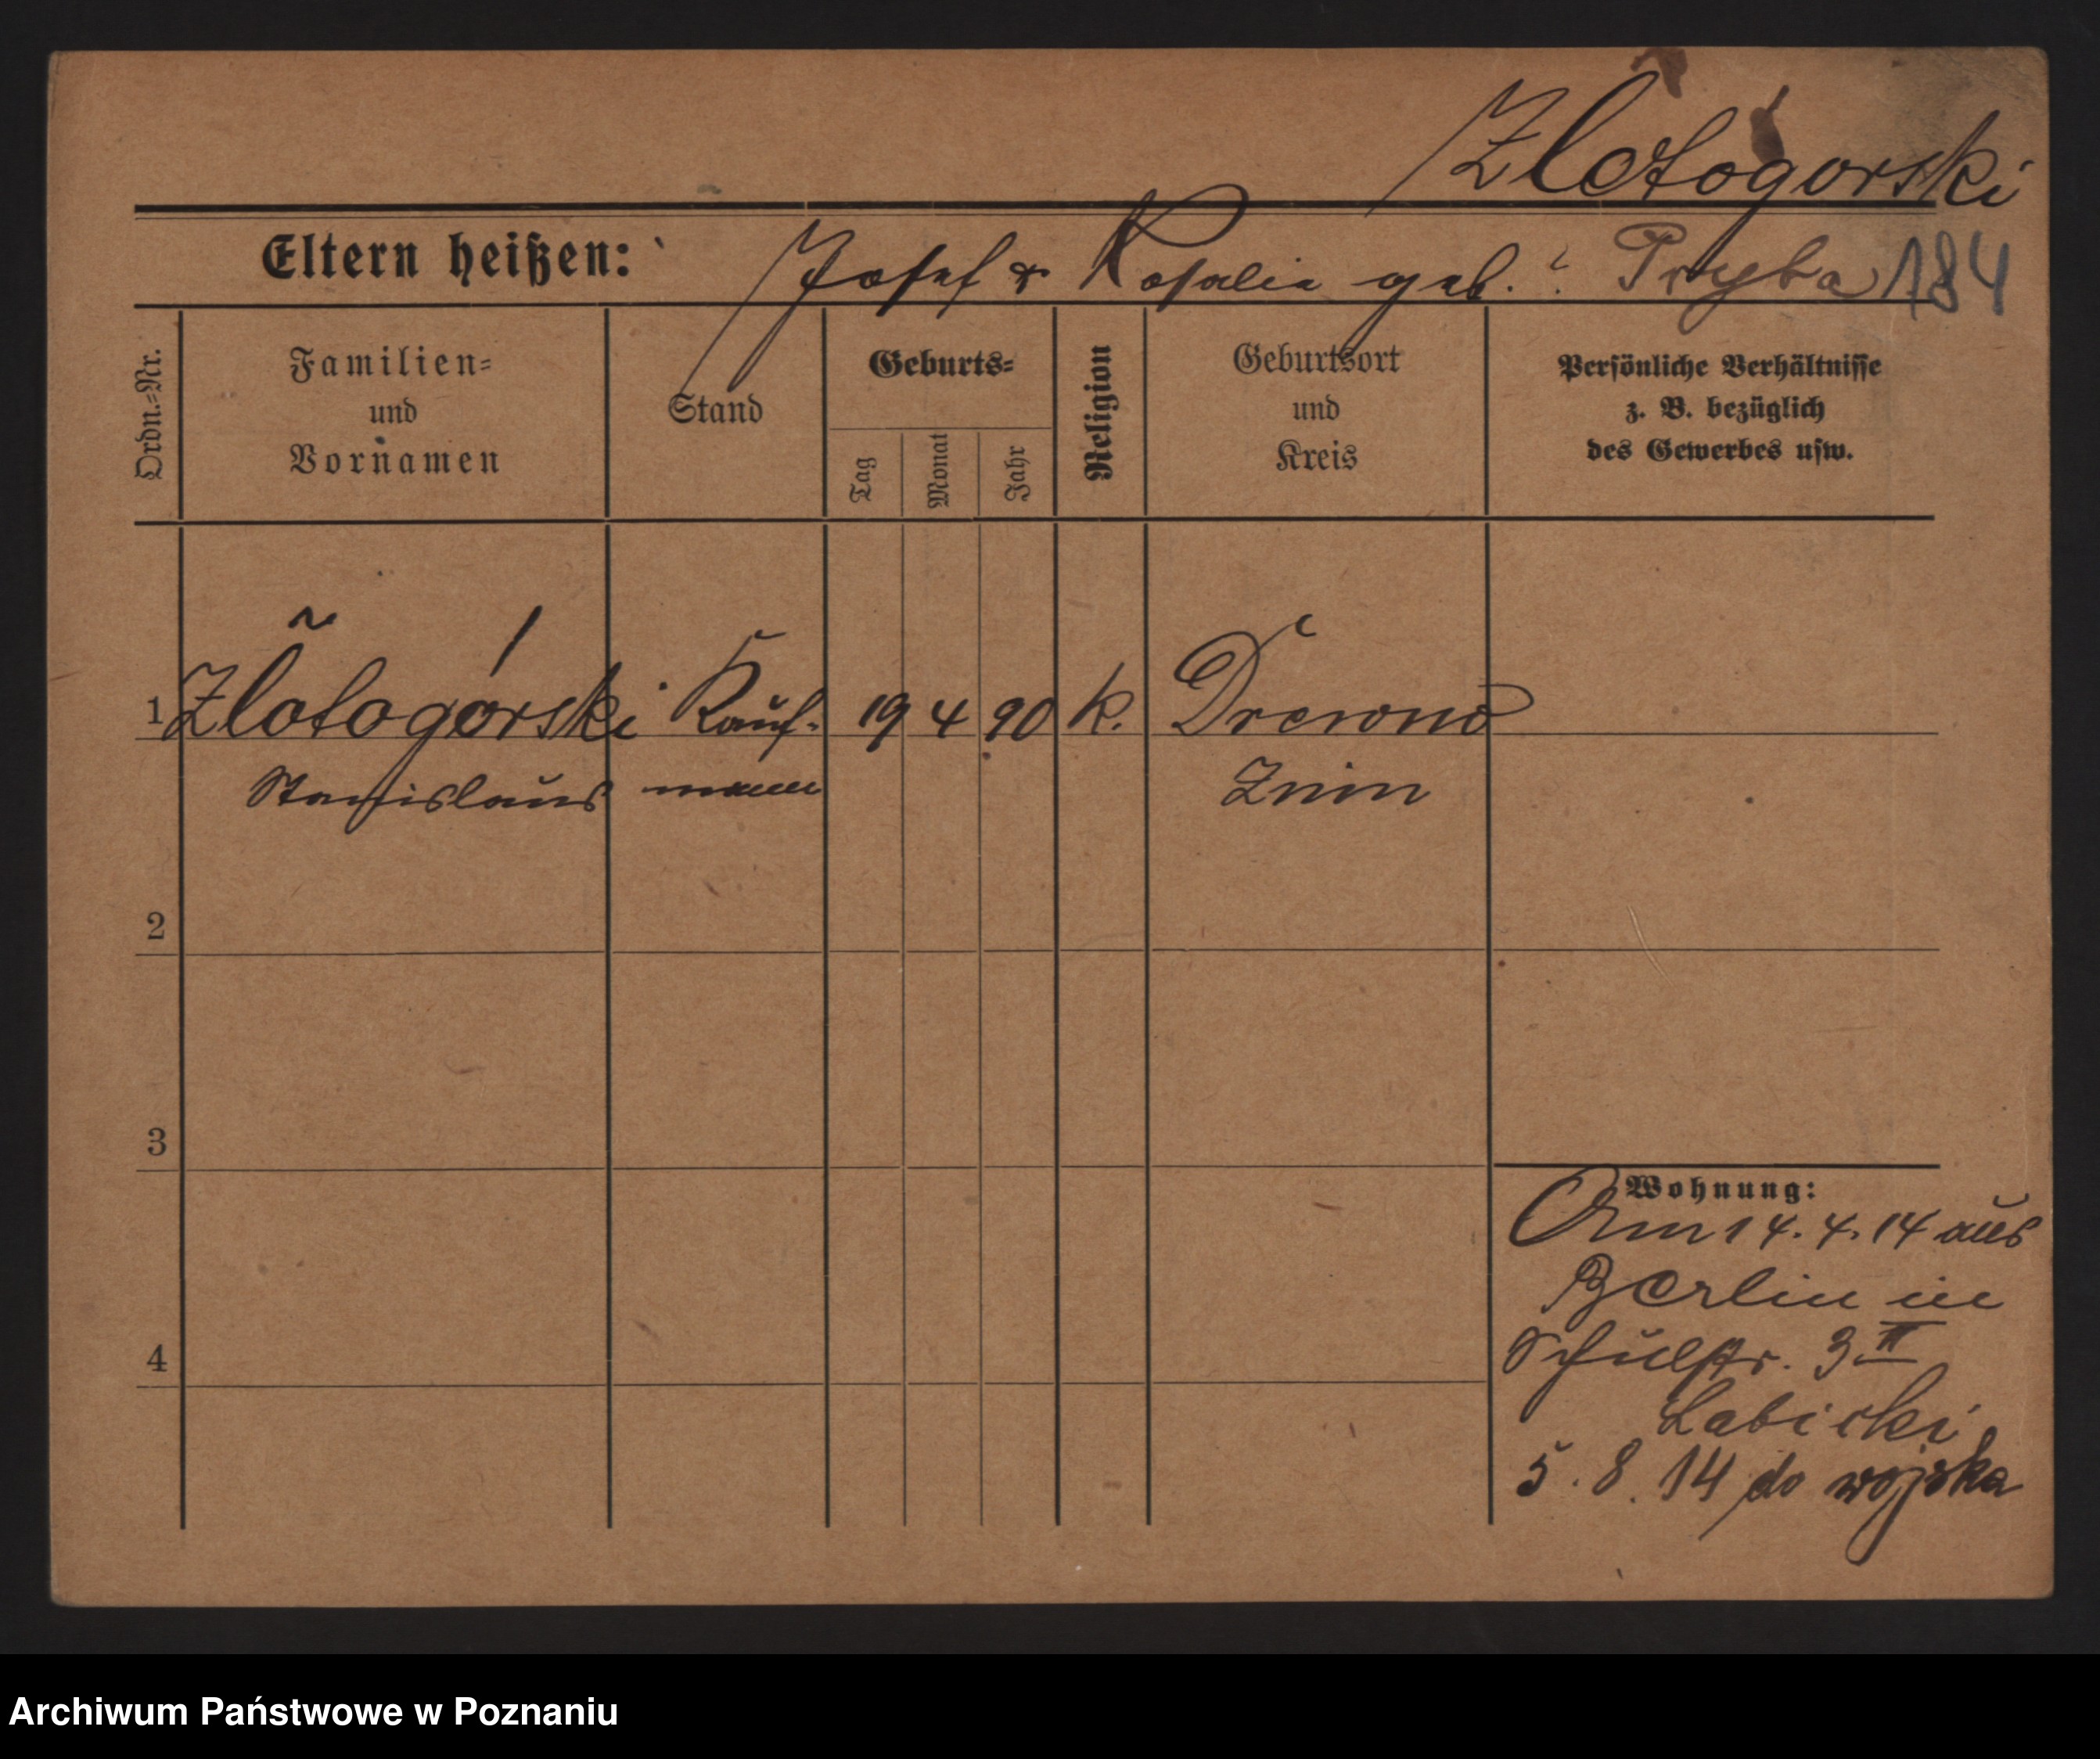 Zlotogorski
Eltern heißen: Josef & Rosalie geb. Pryba 184
Ordn.-Nr.
Familien-
und
Vornamen
Stand
Geburts-
Tag
Monat
Jahr
Religion
Geburtsort
und
Kreis
Persönliche Verhältnisse
z. B. bezüglich
des Gewerbes usw.
1 Zlotogórski Kauf- 19 4 90 k. Drewno
Stanislaus mann Znin
2
3
4
Wohnung:
Am 14. 4. 14 aus
Berlin in
Schulstr. 3 II
Labicki
5. 8. 14 do wojska
Archiwum Państwowe w Poznaniu